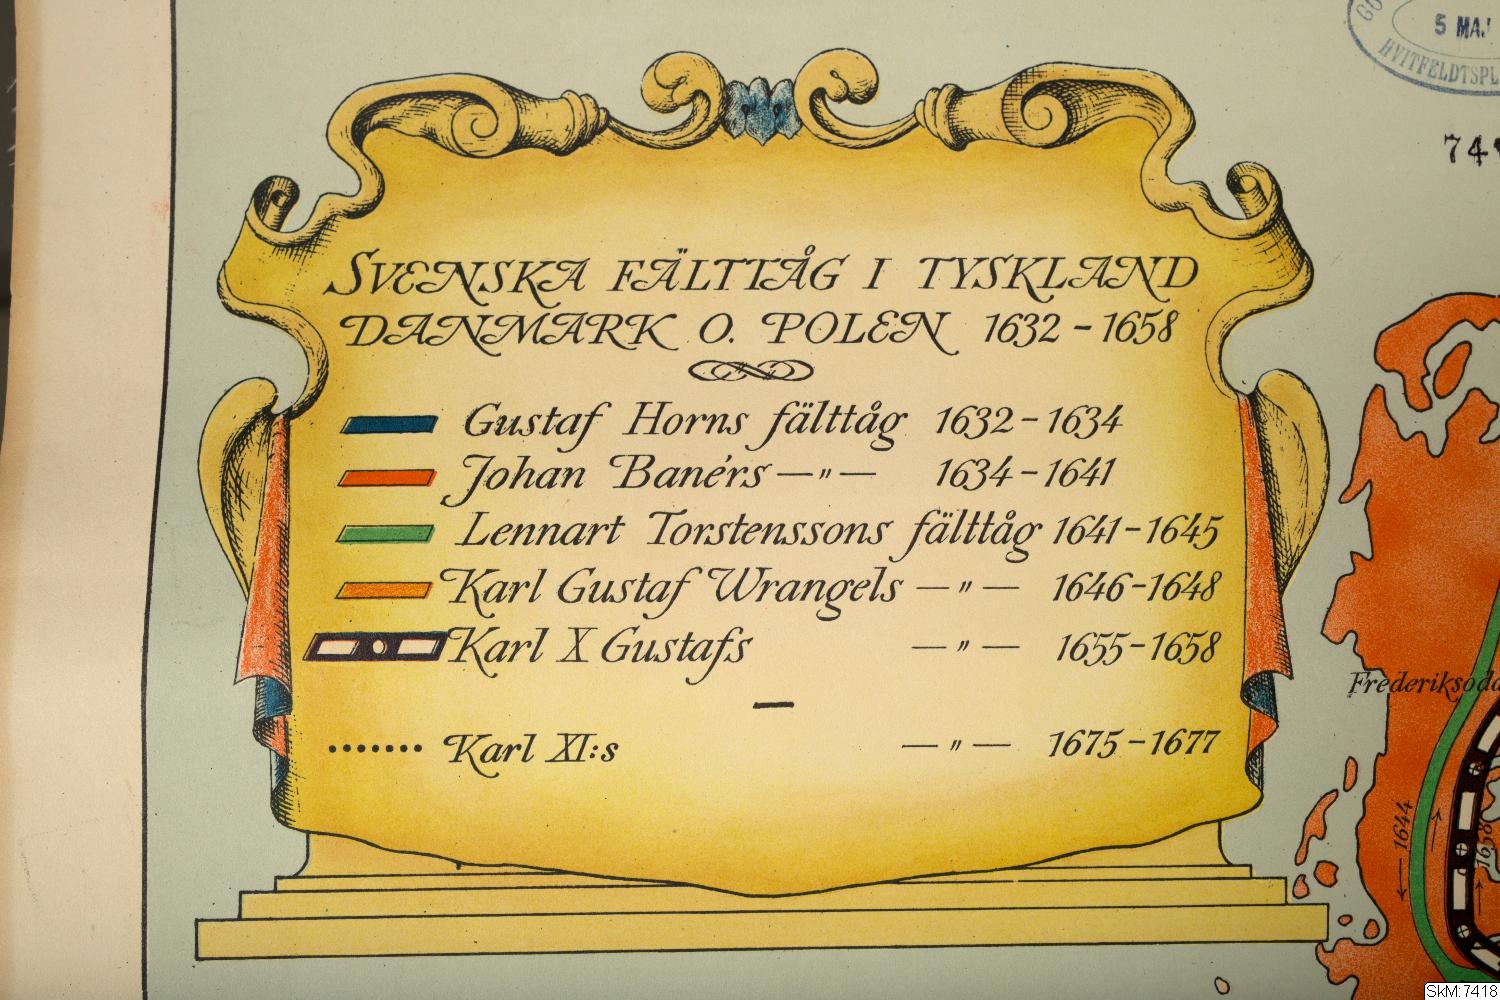 5 MAJ
HVITFELDTSPL
SVENSKA FÄLTTÅG I TYSKLAND
DANMARK O. POLEN 1632 - 1658
Gustaf Horns fälttåg 1632 - 1634
Johan Banérs — " — 1634 - 1641
Lennart Torstenssons fälttåg 1641 - 1645
Karl Gustaf Wrangels — " — 1646 - 1648
Karl X Gustafs — " — 1655 - 1658
Karl XI:s — " — 1675 - 1677
Frederiksodd
1644
1658
SkM:7418